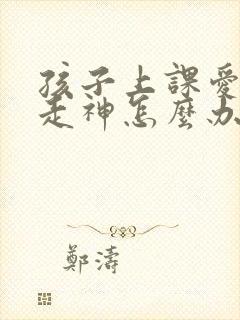 孩子上課愛
走神怎麼办
鄭濤